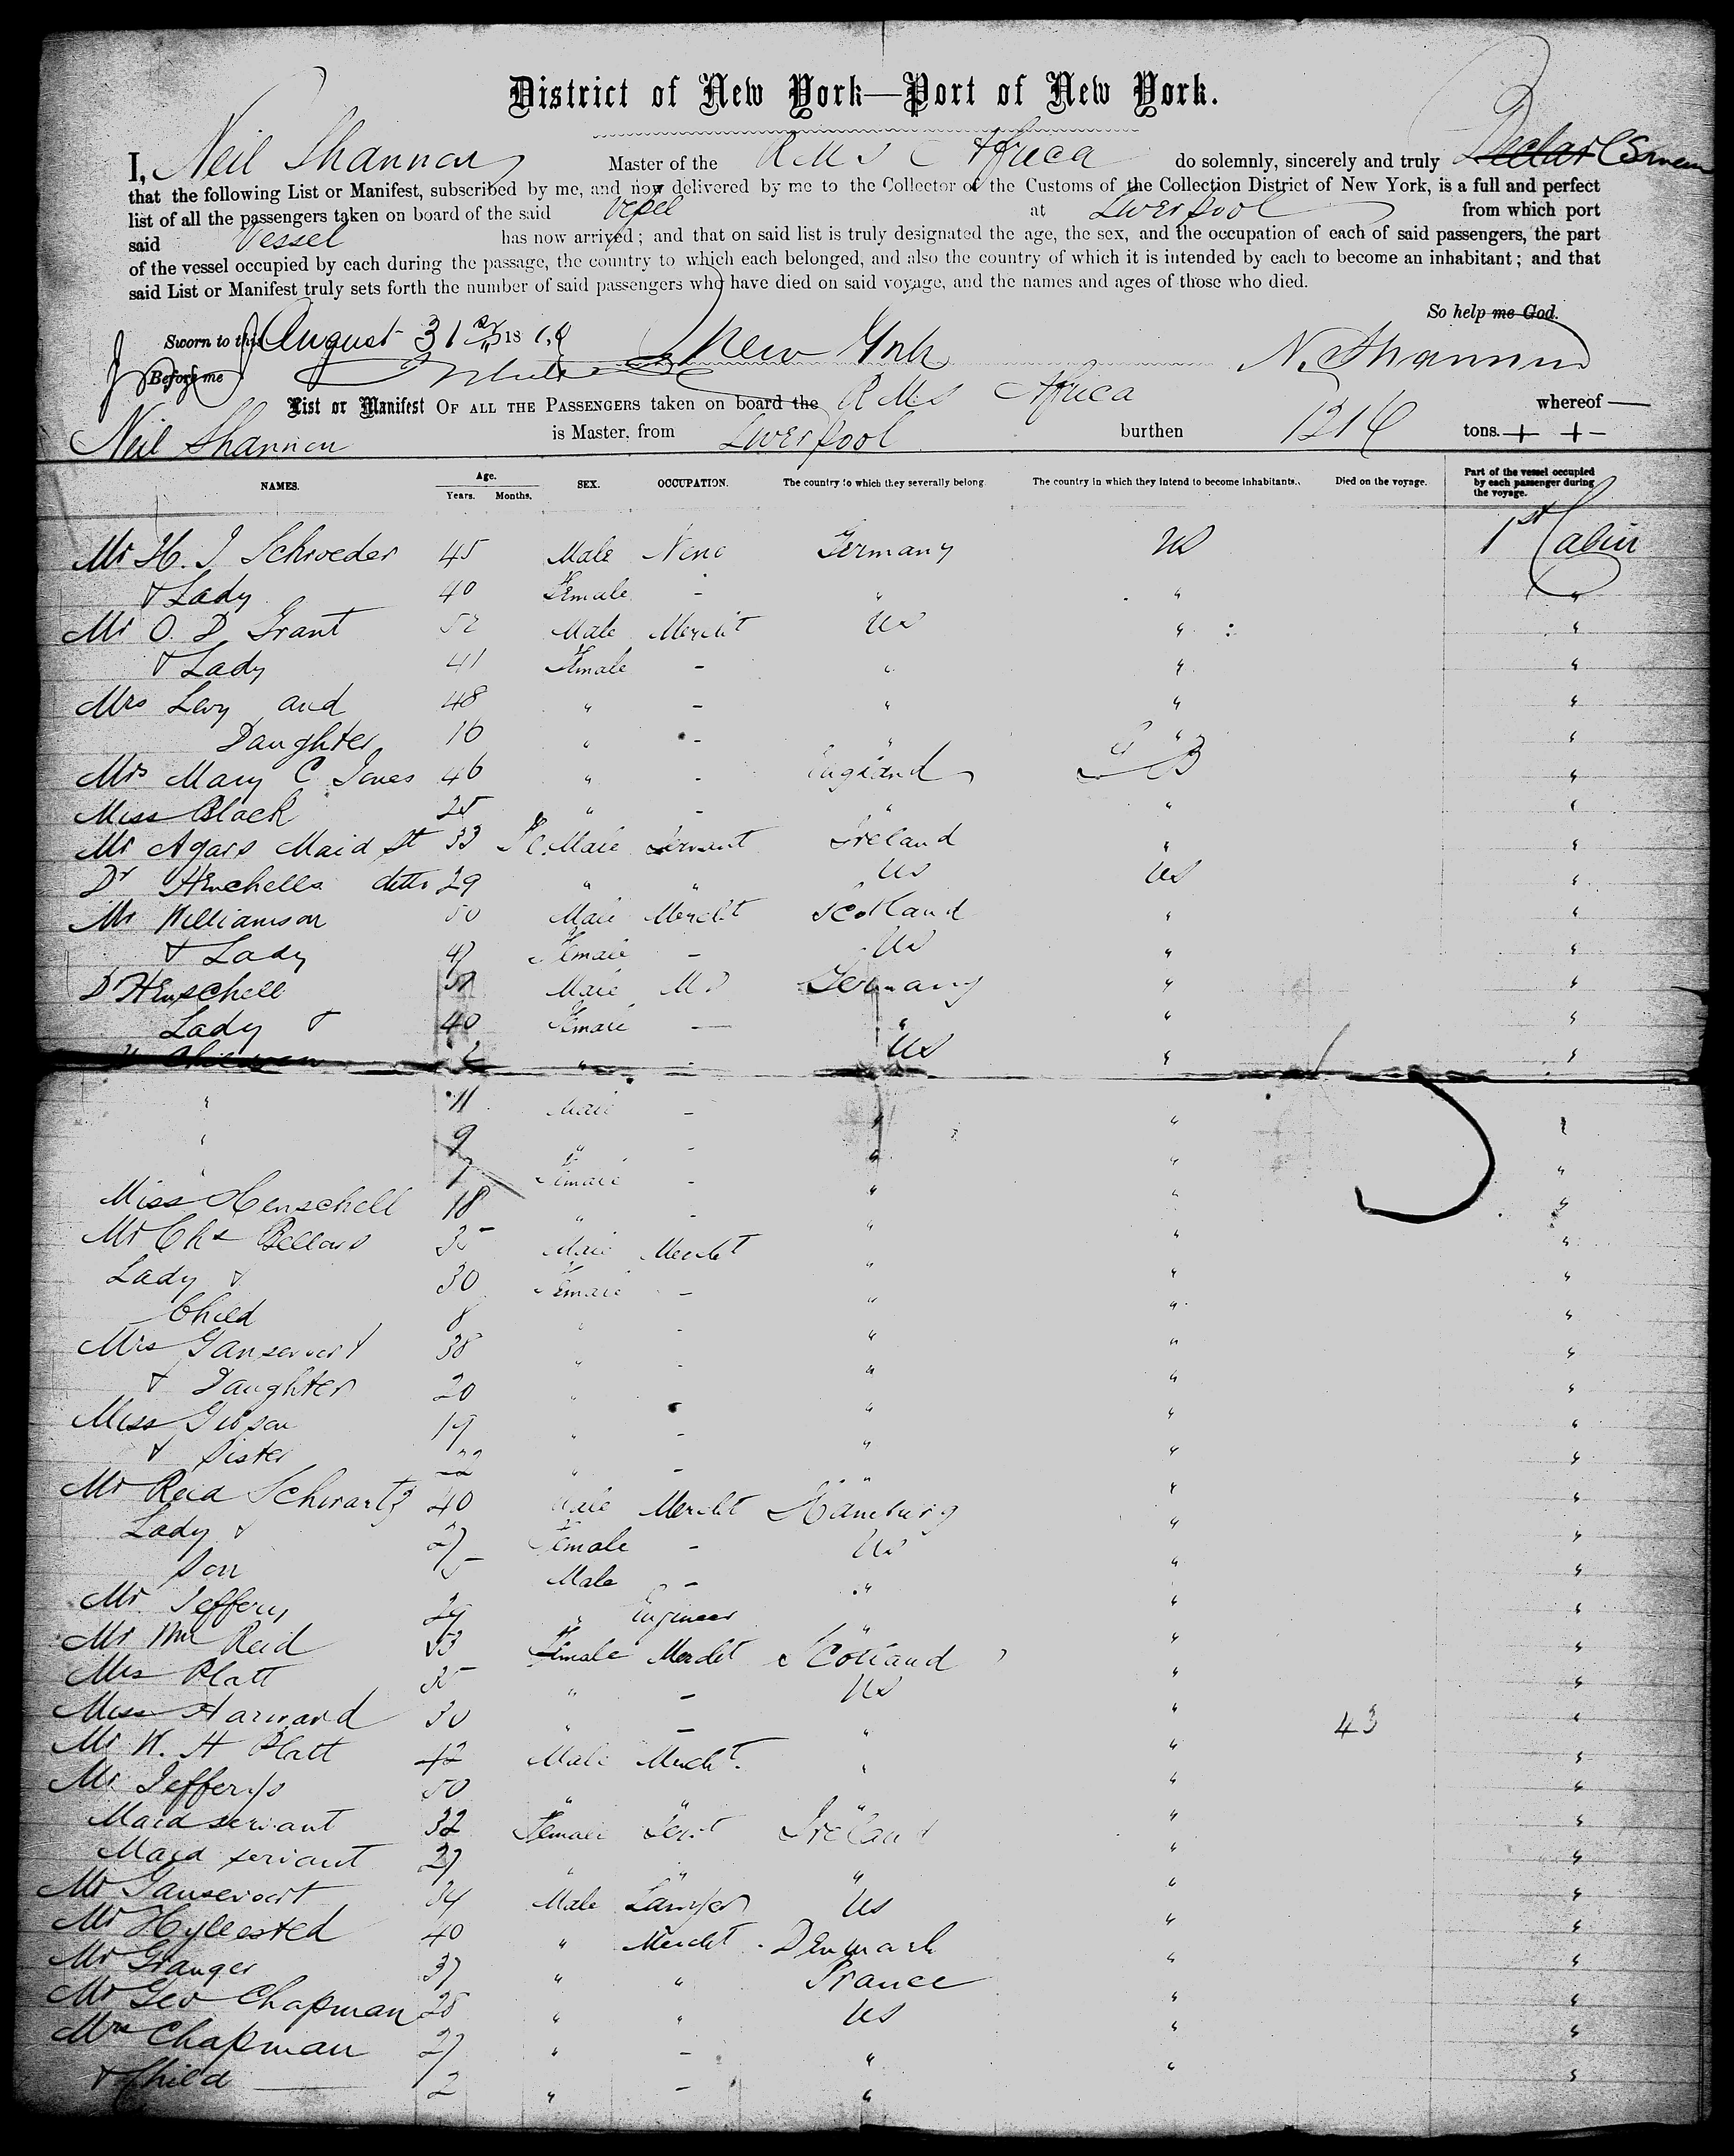 District of New York—Port of New York.
I, Neil Shannon Master of the RMS Africa do solemnly, sincerely and truly Declare Swear
that the following List or Manifest, subscribed by me, and now delivered by me to the Collector of the Customs of the Collection District of New York, is a full and perfect
list of all the passengers taken on board of the said Vessel at Liverpool from which port
said Vessel has now arrived; and that on said list is truly designated the age, the sex, and the occupation of each of said passengers, the part
of the vessel occupied by each during the passage, the country to which each belonged, and also the country of which it is intended by each to become an inhabitant; and that
said List or Manifest truly sets forth the number of said passengers who have died on said voyage, and the names and ages of those who died.
So help me God.
Sworn to this August 31st 18 New York N. Shannon
Before me
List or Manifest OF ALL THE PASSENGERS taken on board the RMS Africa whereof
Neil Shannon is Master, from Liverpool burthen 1216 tons.
NAMES. Age. Years. Months. SEX. OCCUPATION. The country to which they severally belong. The country in which they intend to become inhabitants. Died on the voyage. Part of the vessel occupied by each passenger during the voyage.
Mr H. J Schroeder 45 Male None Germany US 1st Cabin
& Lady 40 Female - " " "
Mr O. D. Grant 52 Male Mercht US " "
& Lady 41 Female - " " "
Mrs Levy and 48 " - " " "
Daughter 16 " - " " "
Mrs Mary C Jones 46 " - England G B "
Miss Black 25 " - " " "
Mr Agars Maid St 33 Fe.Male Servant Ireland " "
Dr Henchells ditto 29 " " US US "
Mr Williamson 50 Male Mercht Scotland " "
& Lady 47 Female - US " "
Dr Henschell Male MD Germany " "
Lady & 40 Female - " " "
Children " - US " "
" 11 Male - " " "
" 9 " - " " "
" 7 Female - " " "
Miss Henschell 18 " - " " "
Mr Chs Bellows 35 Male Mercht " " "
Lady & 30 Female - " " "
Child 8 " - " " "
Mrs Gansevoort 38 " - " " "
& Daughter 20 " " " "
Miss Gibson 19 " - " " "
& Sister 22 " - " " "
Mr Reid Schwartz 40 Male Mercht Hamburg " "
Lady & 27 Female - US " "
Son Male - " " "
Mr Jeffery 29 " Engineer " " "
Mr Wm Reid 53 Female Mercht Scotland " "
Mrs Platt 35 " - US " "
Miss Harward 30 " - " " 43 "
Mr W. H Platt 42 Male Mercht. " " "
Mr Jefferys 50 " " " " "
Maid servant 32 Female Servt Ireland " "
Maid servant 27 " " " " "
Mr Gansevoort 34 Male Lawyer US " "
Mr Hyllested 40 " Mercht Denmark " "
Mr Granger 37 " " France " "
Mr Geo Chapman 28 " " US " "
Mrs Chapman 27 " - " " "
& Child 2 " - " " "